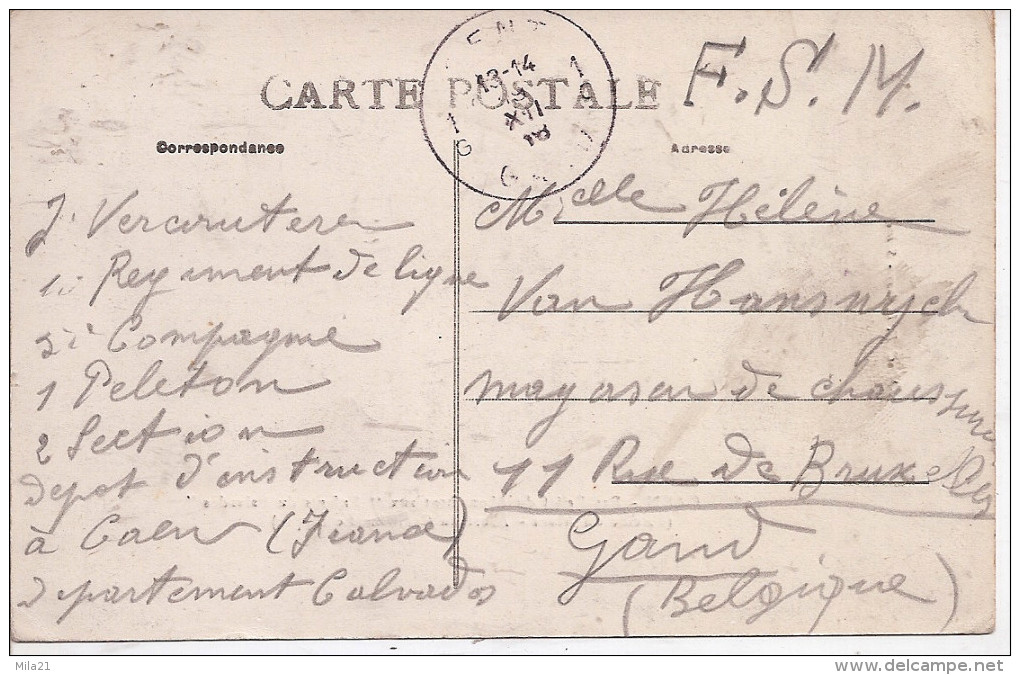 CARTE POSTALE
F.S.M.
GENT
13-14
5
XII
18
GAND
Correspondance
Adresse
J. Vercruteren
1è Regiment de ligne
2è Compagnie
1 Peleton
2 Section
depot d'instruction
à Caen (France)
departement Calvados
Melle Hélène
Van
magasin de chaussures
11 Rue de Bruxelles
Gand
(Belgique)
Mila21
www.delcampe.net